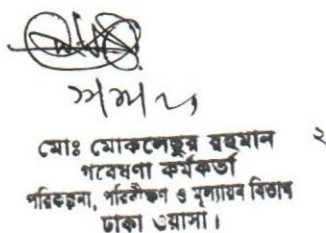 মোঃ মোকলেছুর রহমান
গবেষণা কর্মকর্তা
পরিকল্পনা, পরিবীক্ষণ ও মূল্যায়ন বিভাগ
ঢাকা ওয়াসা।
২